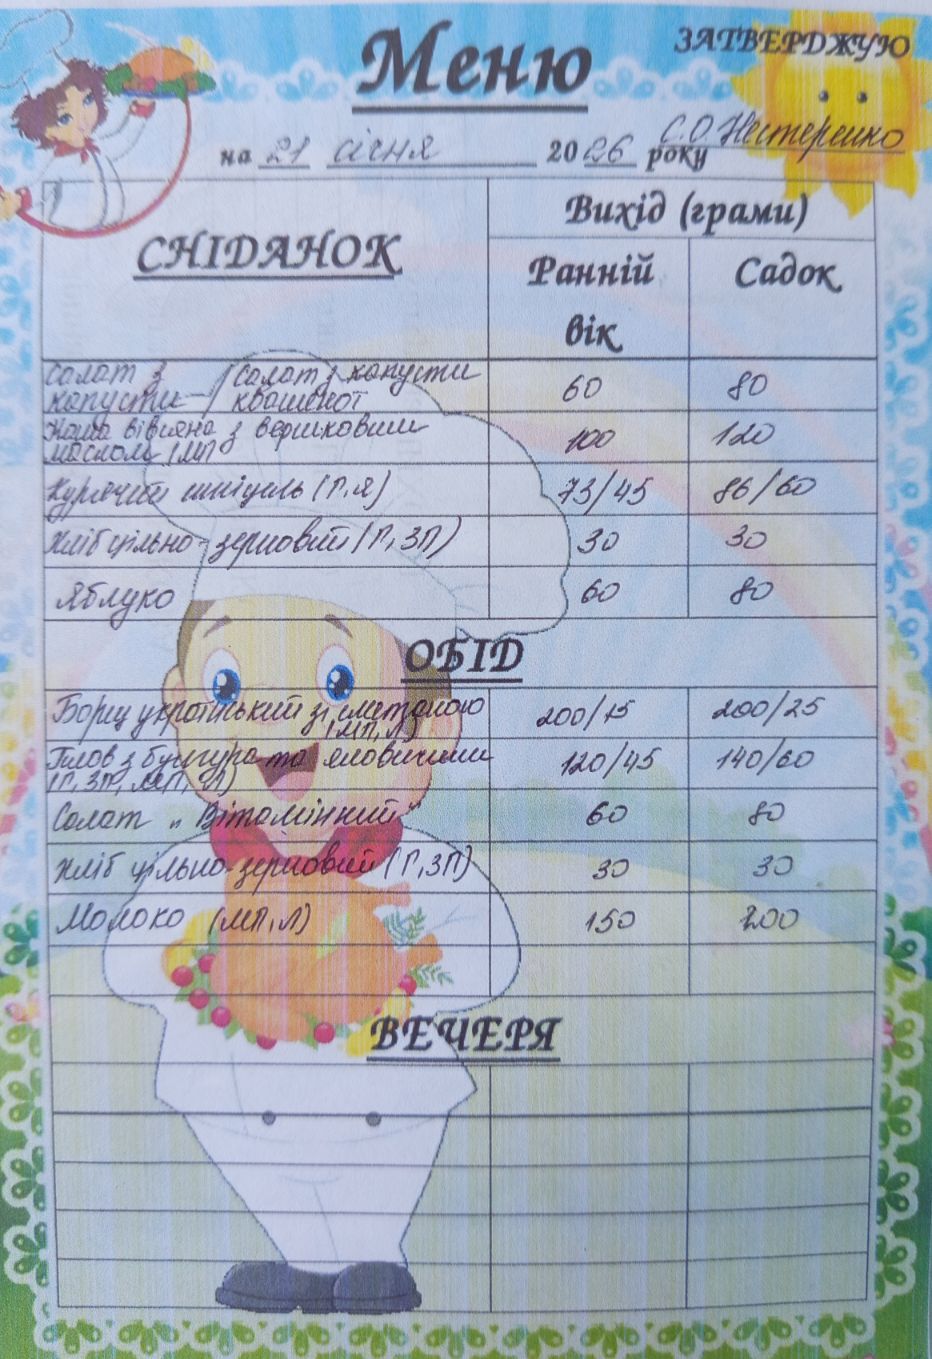 ЗАТВЕРДЖУЮ
Меню
С.О. Нестеренко
на 21 січня 2026 року
СНІДАНОК
Вихід (грами)
Ранній вік
Садок
Салат з капусти / Салат з капусти квашеної 60 80
Каша вівсяна з вершковим маслом (МП 100 120
Курячий шніцель (Г,Я) 73/45 86/60
Хліб цільно-зерновий (Г,ЗП) 30 30
Яблуко 60 80
ОБІД
Борщ український зі сметаною (МП,Л) 200/15 200/25
Плов з булгура та яловичини (Г, ЗП, МП, Л) 120/45 140/60
Салат „Вітамінний" 60 80
Хліб цільно-зерновий (Г,ЗП) 30 30
Молоко (МП,Л) 150 200
ВЕЧЕРЯ